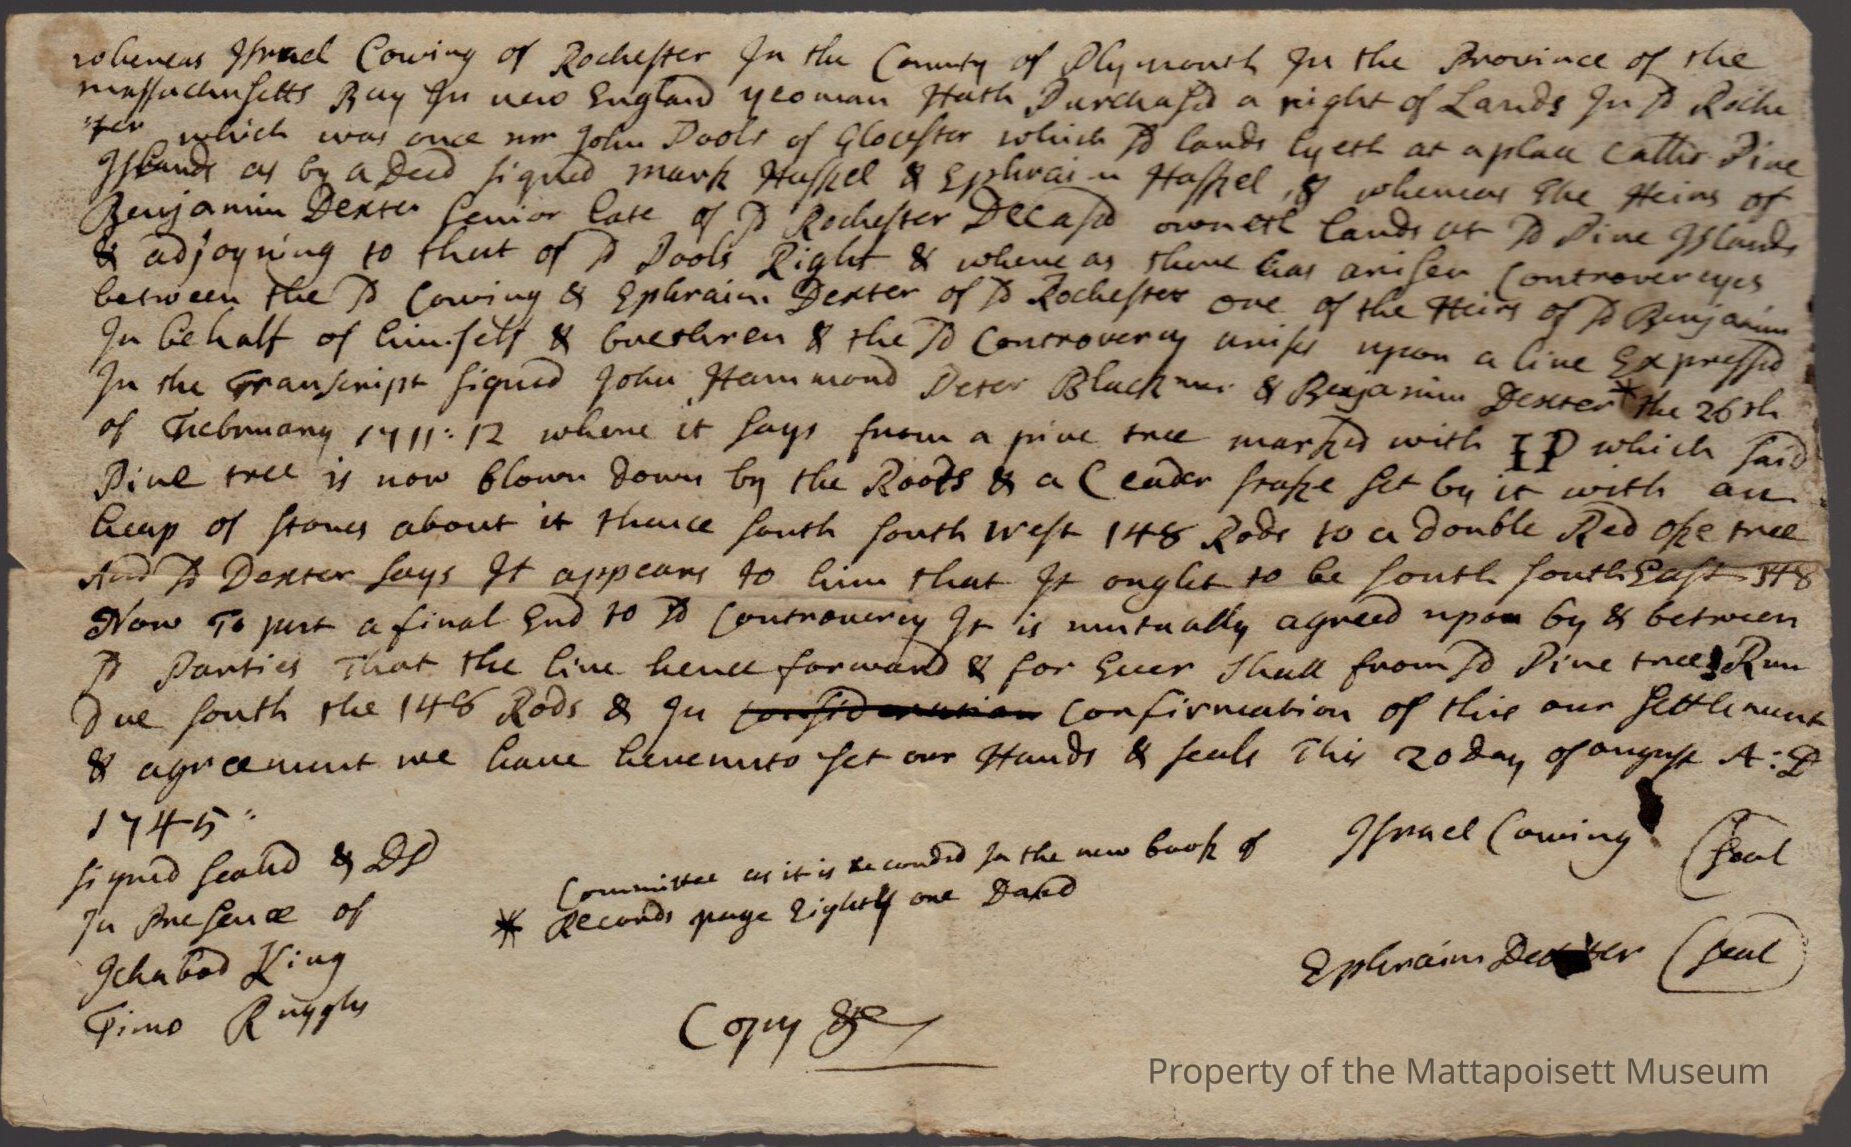 whereas Israel Cowing of Rochester In the County of Plymouth In the Province of the
massachusetts Bay In new England yeoman Hath Purchasd a right of Lands In sd Roche
ster which was once mr John Pools of Glocester which sd lands lyeth at a place Calld Pine
Islands as by a Deed signed mark Haskel & Ephraim Haskel, & whereas the Heirs of
Benjamin Dexter senior late of sd Rochester Decasd owneth lands at sd Pine Islands
& adjoyning to that of sd Pools Right & where as there has arisen Controvercyes
between the sd Cowing & Ephraim Dexter of sd Rochester one of the Heirs of sd Benjamin
In behalf of himself & brethren & the sd Controvercy arises upon a line Expressd
In the Transcript signed John Hammond Peter Blackmer & Benjamin Dexter * the 26th
of Februuary 1711:12 where it says from a pine tree markd with IP which said
Pine tree is now blown down by the Roots & a Ceader stake set by it with an
heap of stones about it thence south south west 148 Rods to a double Red oke tree
And sd Dexter says It appears to him that It ought to be south south East 148
Now To put a final End to sd Controvercy It is mutually agreed upon by & between
sd Parties That the line hence forward & for Ever shall from sd Pine tree Run
Due south the 148 Rods & In consideration Confirmation of this our settlement
& agreement we have hereunto set our Hands & seals This 20 day of august A:D
1745"
signed seald & DD
In Presence of
Ichabod King
Timo Ruggles
Committee as it is recorded In the new book of
* Records page Eighty one Dated
Israel Cowing (seal
Ephraim Dexter (seal)
Copy &c
Property of the Mattapoisett Museum